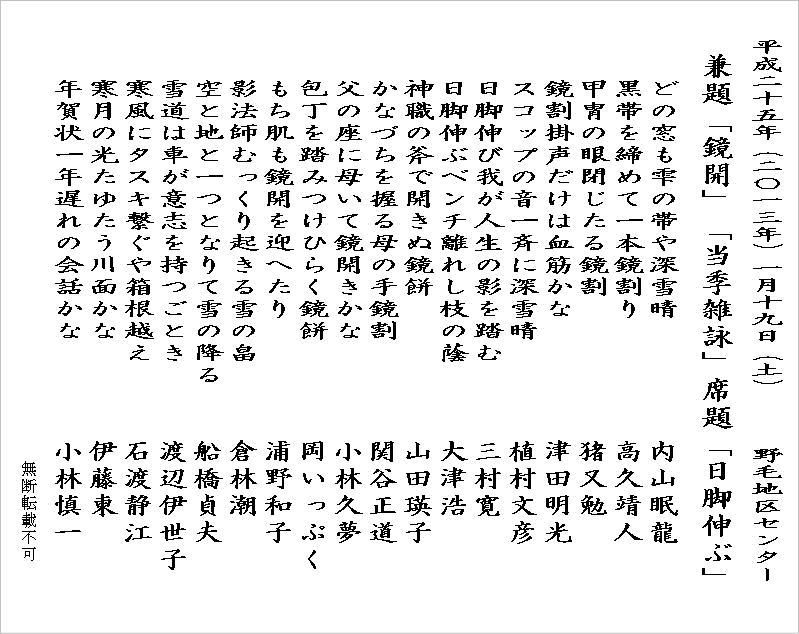 平成二十五年(二〇一三年)一月十九日(土) 野毛地区センター
兼題「鏡開」「当季雑詠」席題「日脚伸ぶ」
どの窓も雫の帯や深雪晴 内山眠龍
黒帯を締めて一本鏡割り 高久靖人
甲冑の眼閉じたる鏡割 猪又勉
鏡割掛声だけは血筋かな 津田明光
スコップの音一斉に深雪晴 植村文彦
日脚伸び我が人生の影を踏む 三村寛
日脚伸ぶベンチ離れし枝の蔭 大津浩
神職の斧で開きぬ鏡餅 山田瑛子
かなづちを握る母の手鏡割 関谷正道
父の座に母いて鏡開きかな 小林久夢
包丁を踏みつけひらく鏡餅 岡いっぷく
もち肌も鏡開を迎へたり 浦野和子
影法師むっくり起きる雪の畠 倉林潮
空と地と一つとなりて雪の降る 船橋貞夫
雪道は車が意志を持つごとき 渡辺伊世子
寒風にタスキ繋ぐや箱根越え 石渡静江
寒月の光たゆたう川面かな 伊藤東
年賀状一年遅れの会話かな 小林慎一
無断転載不可